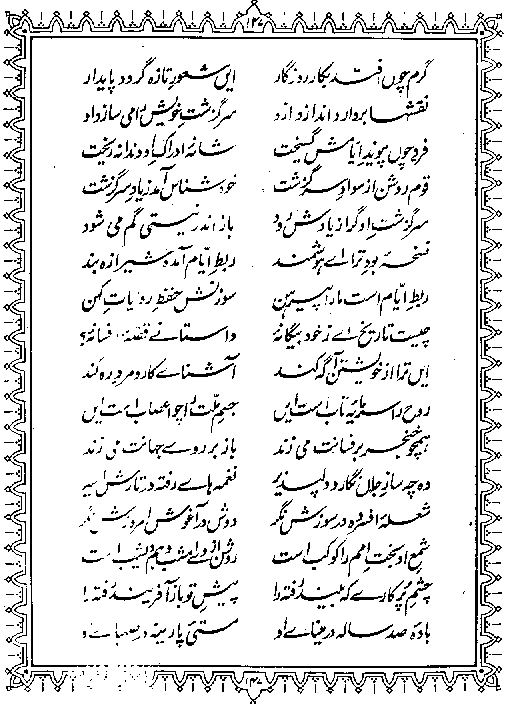 ۱۴۷
گرم چوں افتد بکار روزگار ایں شعورِ تازہ گردد پایدار
نقشہا بردارد و اندازد او سرگزشتِ خویش را می سازد او
فرد چوں پیوندِ ایامش گسیخت شانۂ ادراک او دندانہ ریخت
قوم روشن از سوادِ سرگزشت خود شناس آمد ز یادِ سرگزشت
سرگزشتِ او گر از یادش رود باز اندر نیستی گم می شود
نسخۂ بودِ ترا اے ہوشمند ربطِ ایّام آمدہ شیرازہ بند
ربطِ ایّام است ما را پیرہن سوزنش حفظِ روایاتِ کہن
چیست تاریخ اے ز خود بیگانۂ داستانے قصۂ افسانۂ؟
ایں ترا از خویشتن آگہ کند آشناے کار و مردِ رہ کند
روح را سرمایۂ تاب است ایں جسمِ ملّت را چو اعصاب است ایں
ہمچو خنجر بر فسانت می زند باز بر روے جہانت می زند
وہ چہ سازِ جاں نگار و دلپذیر نغمہ ہاے رفتہ در تارش اسیر
شعلۂ افسردہ در سوزش نگر دوش در آغوشِ امروزش نگر
شمعِ او بختِ امم را کوکب است روشن از وے امشب و ہم دیشب است
چشمِ پُرکارے کہ بیند رفتہ را پیشِ تو باز آفریند رفتہ را
بادۂ صد سالہ در میناے او مستیِ پارینہ در صہباے او
۱۴۷